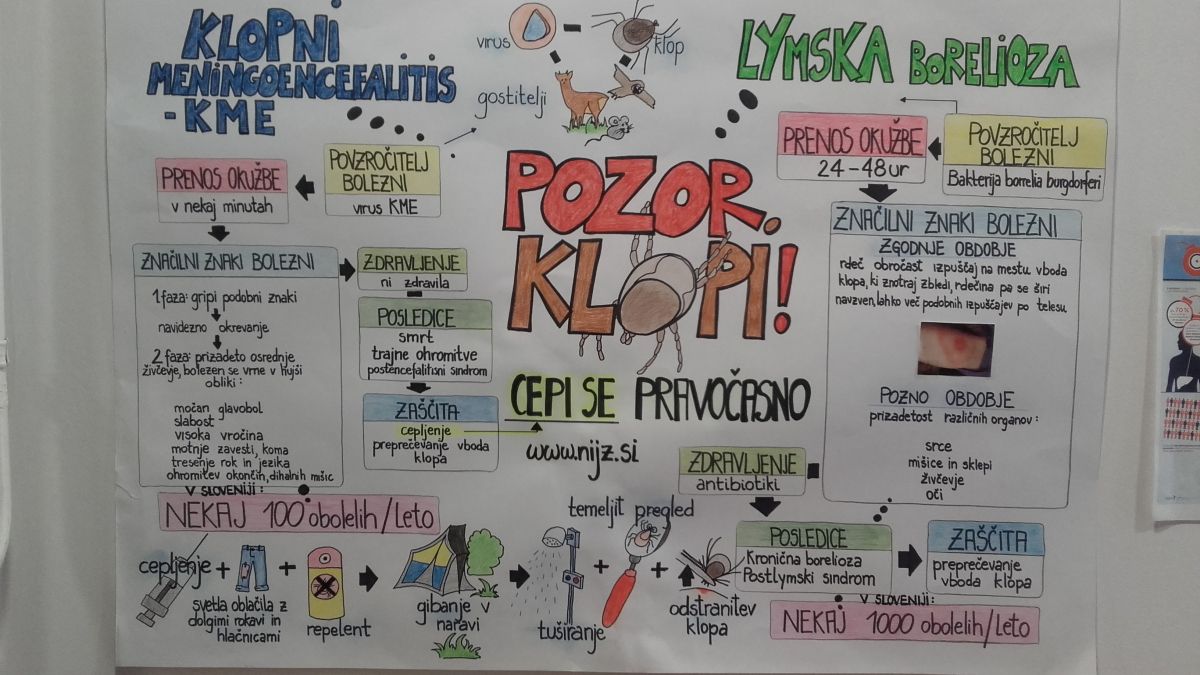 KLOPNI
MENINGOENCEFALITIS
- KME
virus
klop
gostitelji
LYMSKA BORELIOZA
POZOR,
KLOPI!
CEPI SE PRAVOČASNO
www.nijz.si
POVZROČITELJ
BOLEZNI
virus KME
PRENOS OKUŽBE
v nekaj minutah
ZNAČILNI ZNAKI BOLEZNI
1. faza: gripi podobni znaki
navidezno okrevanje
2. faza: prizadeto osrednje
živčevje, bolezen se vrne v hujši
obliki:
močan glavobol
slabost
visoka vročina
motnje zavesti, koma
tresenje rok in jezika
ohromitev okončin, dihalnih mišic
ZDRAVLJENJE
ni zdravila
POSLEDICE
smrt
trajne ohromitve
postencefalitisni sindrom
ZAŠČITA
cepljenje
preprečevanje vboda
klopa
V SLOVENIJI:
NEKAJ 100 obolelih/Leto
POVZROČITELJ
BOLEZNI
Bakterija borrelia burgdorferi
PRENOS OKUŽBE
24-48ur
ZNAČILNI ZNAKI BOLEZNI
ZGODNJE OBDOBJE
rdeč obročast izpuščaj na mestu vboda
klopa, ki znotraj zbledi, rdečina pa se širi
navzven, lahko več podobnih izpuščajev po telesu
POZNO OBDOBJE
prizadetost različnih organov:
srce
mišice in sklepi
živčevje
oči
ZDRAVLJENJE
antibiotiki
POSLEDICE
Kronična borelioza
Postlymski sindrom
ZAŠČITA
preprečevanje
vboda klopa
V SLOVENIJI:
NEKAJ 1000 obolelih/Leto
cepljenje +
svetla oblačila z
dolgimi rokavi in
hlačnicami
+
repelent
gibanje v
naravi
tuširanje
+
temeljit pregled
+
odstranitev
klopa
70%